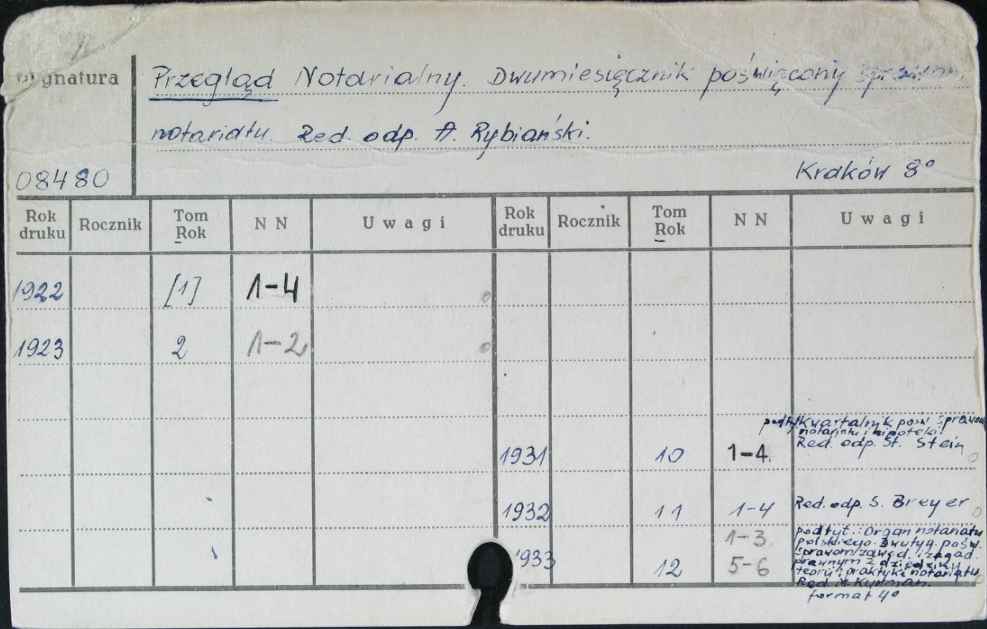 Sygnatura
Przegląd Notarialny. Dwumiesięcznik poświęcony sprawom
notariatu. Red. odp. A. Rybiański.
08480
Kraków 8°
Rok druku Rocznik Tom Rok N N U w a g i Rok druku Rocznik Tom Rok N N U w a g i
1922 [1] 1-4
1923 2 1-2
podtyt. Kwartalnik pośw. sprawom
notariatu i hipoteki
Red. odp. St. Stein
1931 10 1-4.
1932 11 1-4 Red. odp. S. Breyer
1933 12 1-3 5-6
podtyt.: Organ notariatu
polskiego. Dwutyg. pośw.
sprawom zawod. i zagad.
prawnym z dziedziny
teorii i praktyki notariatu
Red. 
format 4°